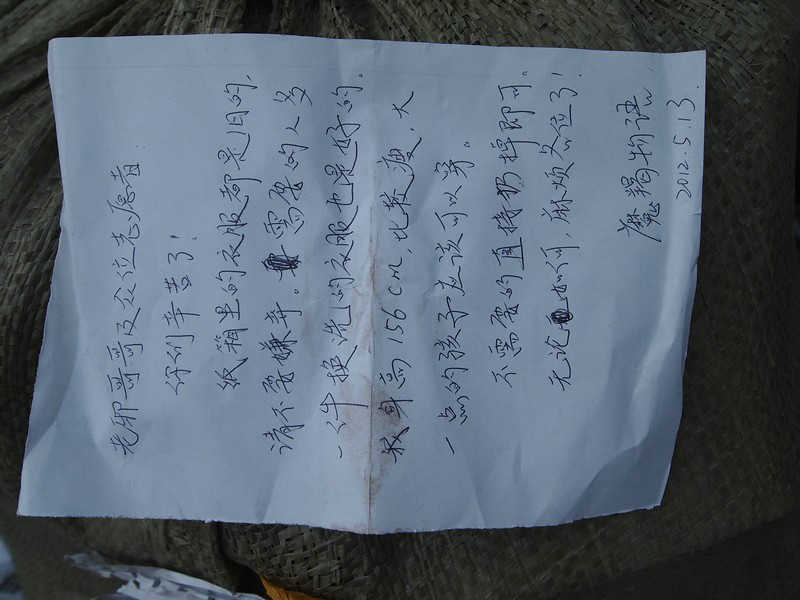 老邪哥哥及众位志愿者:
你们辛苦了!
纸箱里的衣服都是旧的,
请不要嫌弃。需要的人多
一件换洗的衣服也是好的。
我身高156cm,比较瘦,大
一点的孩子应该可以穿。
不需要的直接扔掉即可。
无论如何,麻烦各位了!
魔羯物语
2012.5.13.